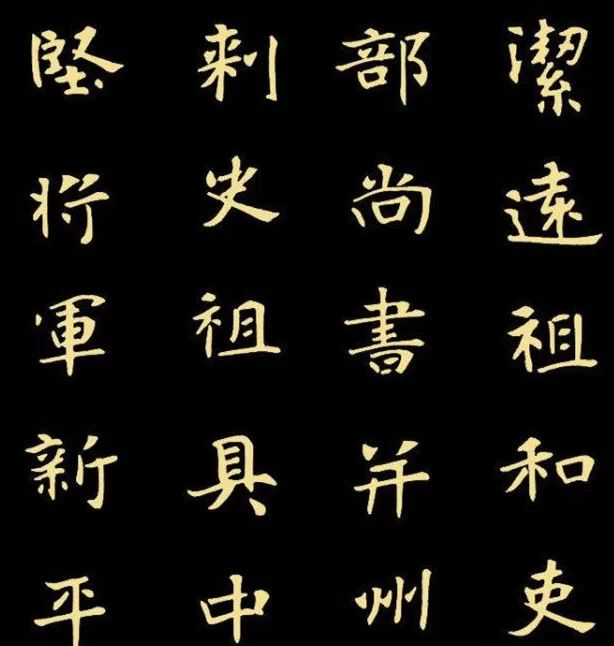 潔遠祖和吏
部尚書并州
刺史祖具中
堅將軍新平